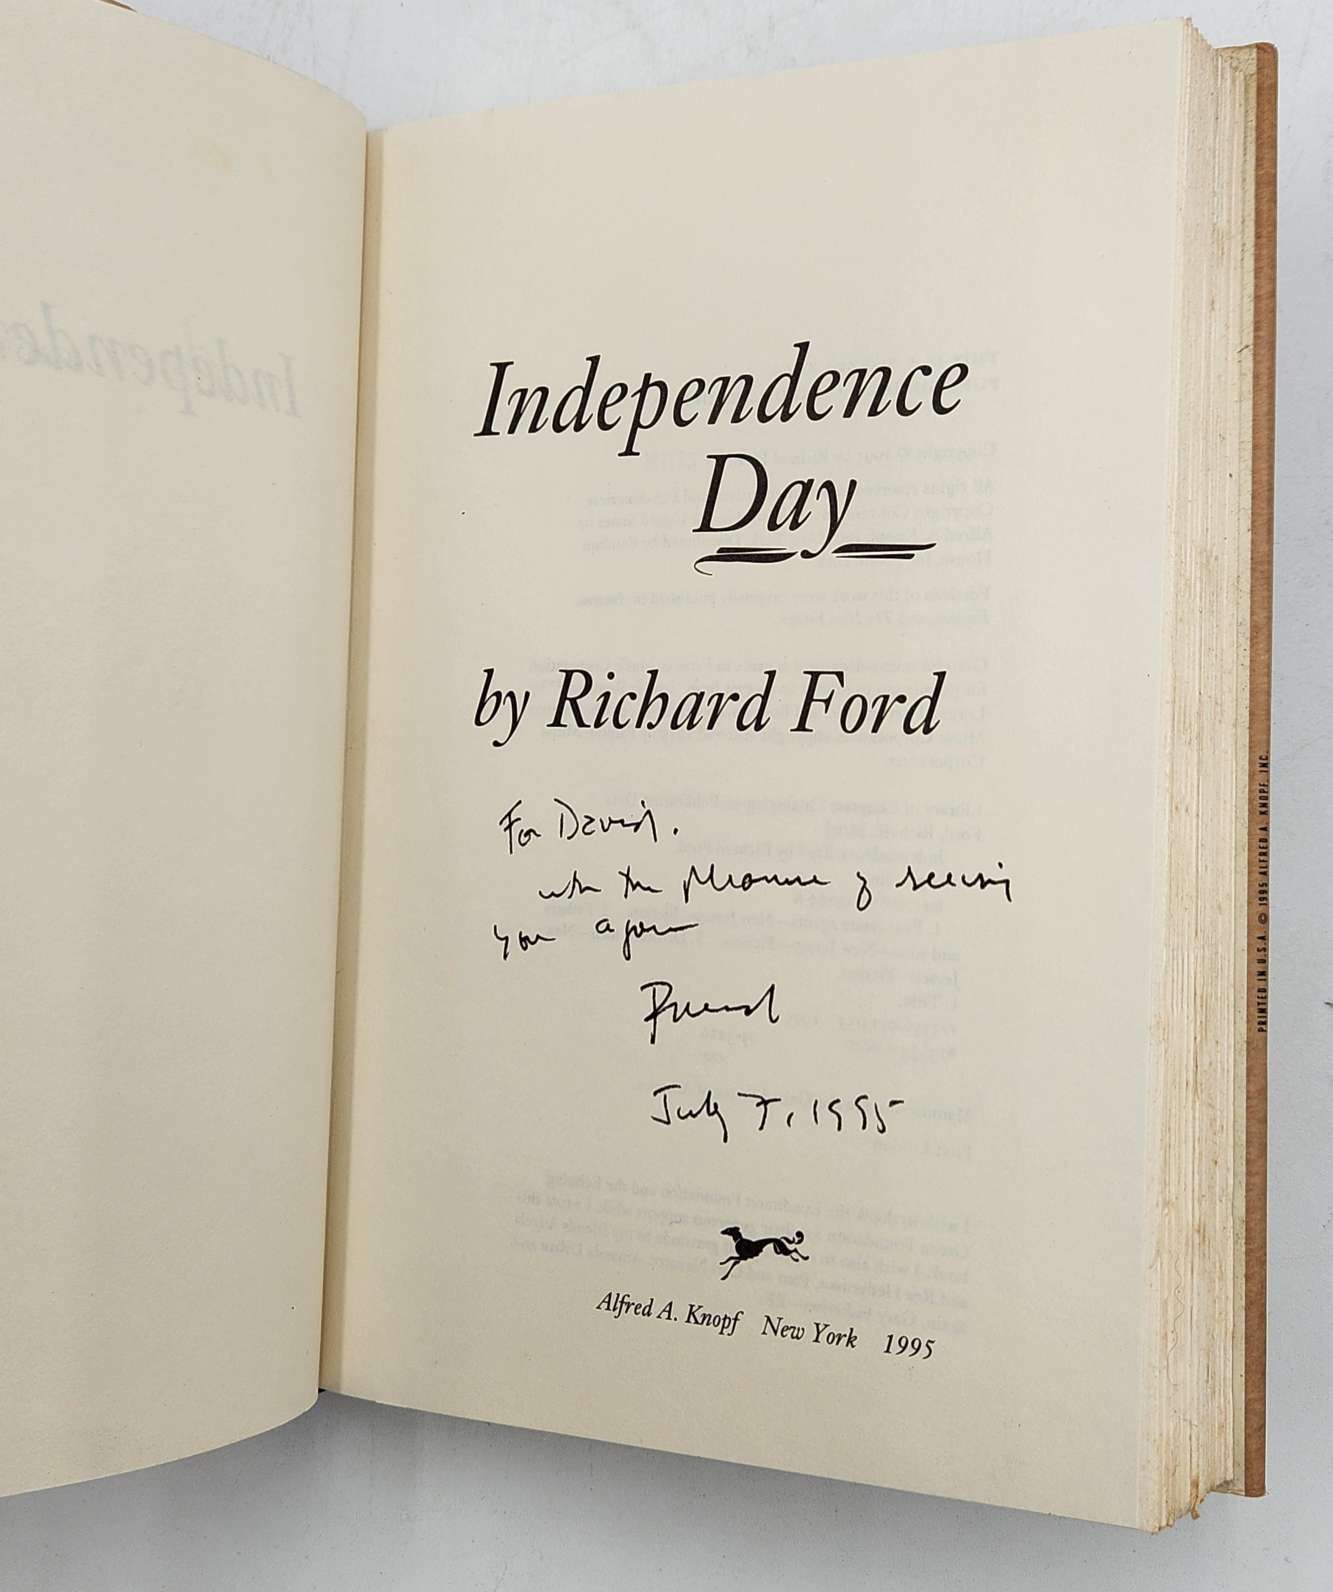 Independence
Day
by Richard Ford
For David.
with the pleasure of seeing
you again
Richard
July 7, 1995
Alfred A. Knopf New York 1995
PRINTED IN U.S.A. © 1995 ALFRED A. KNOPF, INC.